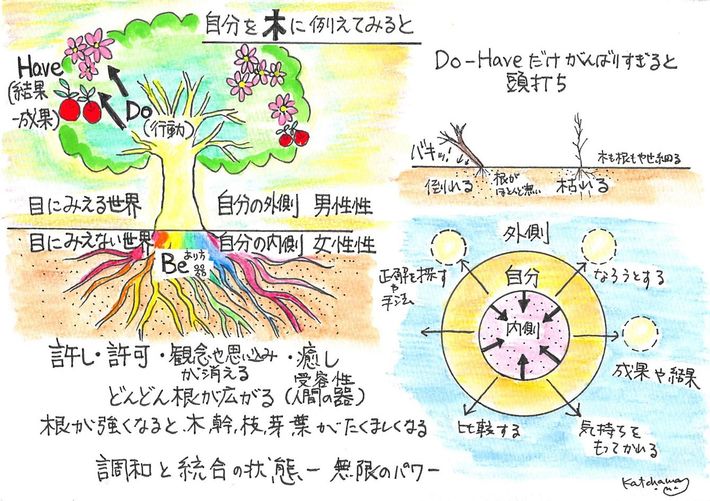 自分を木に例えてみると
Have
(結果
-成果)
Do
(行動)
目にみえる世界
自分の外側 男性性
目にみえない世界
自分の内側 女性性
Be あり方
器
許し・許可・観念や思い込み・癒し
が消える 受容性
どんどん根が広がる(人間の器)
根が強くなると、木、幹、枝、芽、葉がたくましくなる
調和と統合の状態ー無限のパワー
Do-Haveだけがんばりすぎると
頭打ち
バキッ!
木も根もやせ細る
倒れる
根が
ほとんど無い
枯れる
外側
自分
内側
正解を探す
や
手法
なろうとする
成果や結果
比較する
気持ちを
もってかれる
Katchama